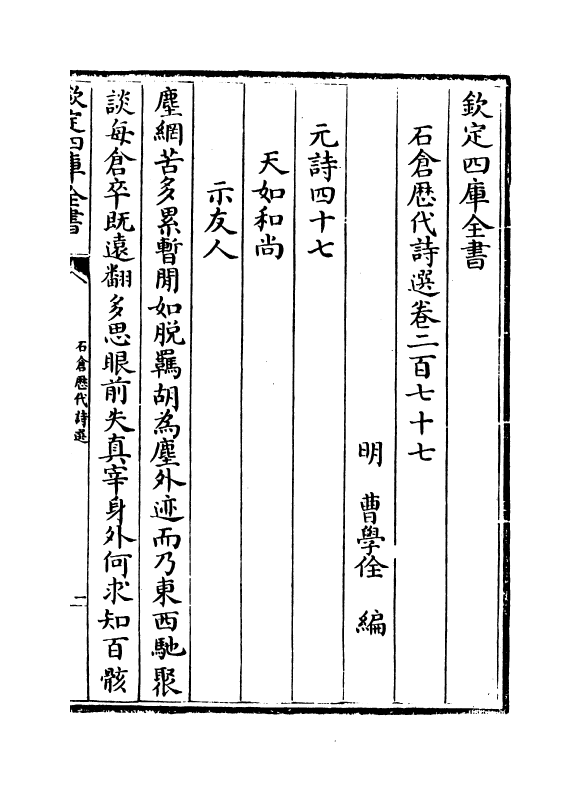 欽定四庫全書
石倉歷代詩選卷二百七十七
明 曹學佺 編
元詩四十七
天如和尚
示友人
塵網苦多累暫閒如脫羈胡為塵外迹而乃東西馳聚
談每倉卒既遠翻多思眼前失真宰身外何求知百骸
欽定四庫全書
石倉歷代詩選